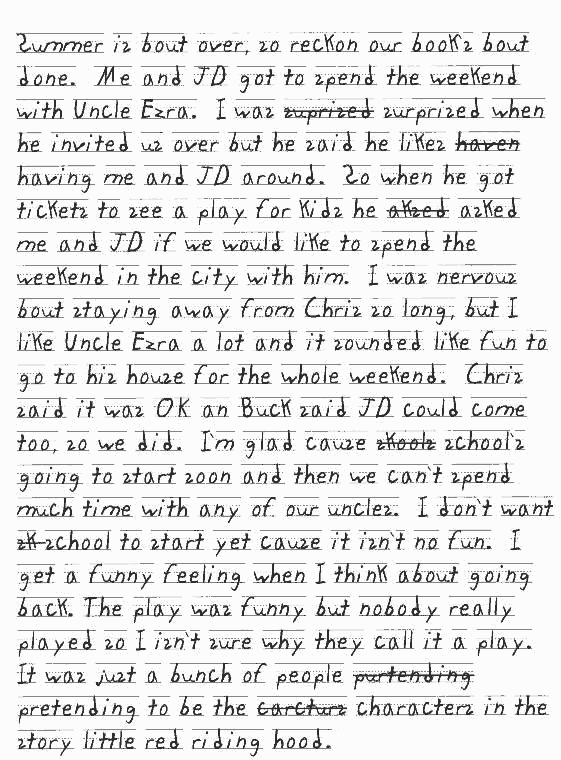 Summer is bout over, so reckon our book's bout
done. Me and JD got to spend the weekend
with Uncle Ezra. I was suprized surprized when
he invited us over but he said he likes haven
having me and JD around. So when he got
tickets to see a play for kids he aksed asked
me and JD if we would like to spend the
weekend in the city with him. I was nervous
bout staying away from Chris so long, but I
like Uncle Ezra a lot and it sounded like fun to
go to his house for the whole weekend. Chris
said it was OK an Buck said JD could come
too, so we did. I'm glad cause skools school's
going to start soon and then we can't spend
much time with any of our uncles. I don't want
sk school to start yet cause it isn't no fun. I
get a funny feeling when I think about going
back. The play was funny but nobody really
played so I isn't sure why they call it a play.
It was just a bunch of people purtending
pretending to be the carcturs characters in the
story little red riding hood.